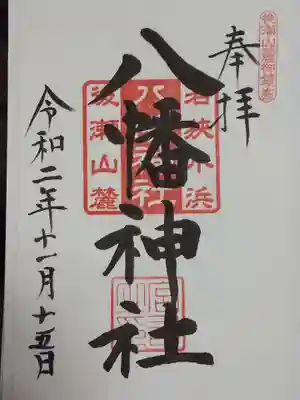 奉拝
八幡神社
若狭小浜
八幡神社
後瀬山麓
令和二年十一月十五日